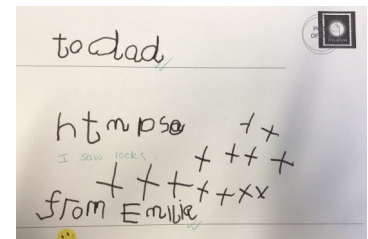 to dad
htmpsa
I saw rocks.
from Emilie